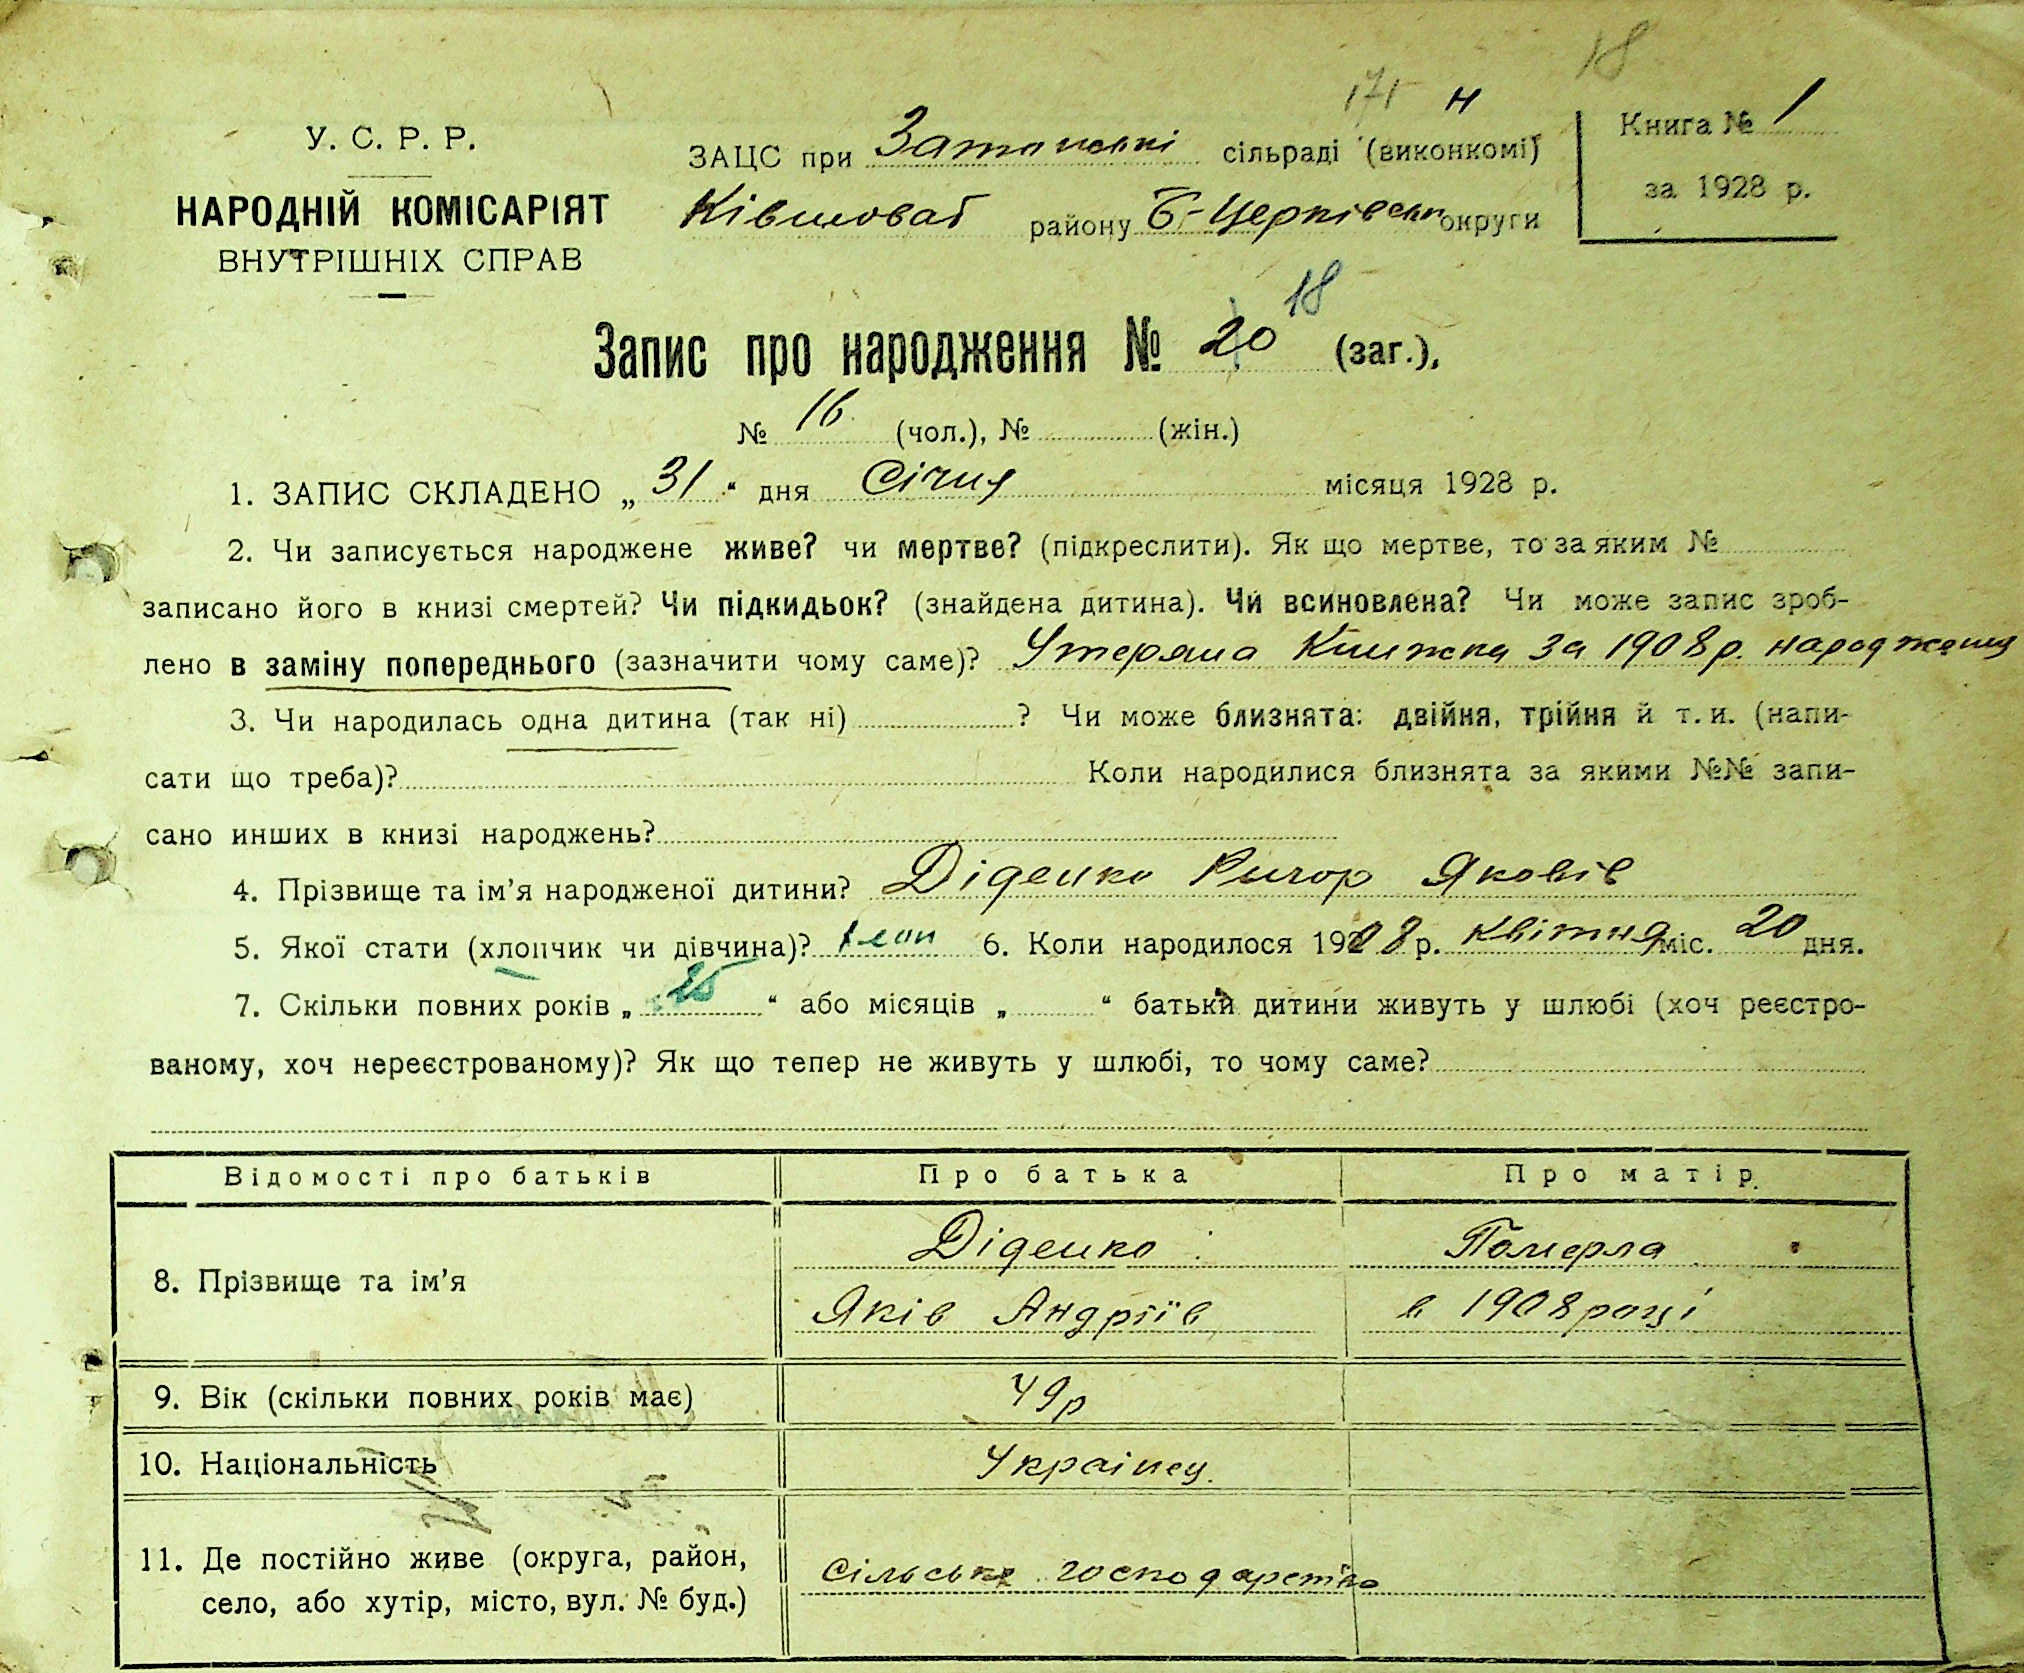 18
171 н
У. С. Р. Р.
НАРОДНІЙ КОМІСАРІЯТ
ВНУТРІШНІХ СПРАВ
ЗАЦС при сільраді (виконкомі)
Ківшоват району Б-Церківськ округи
Книга № 1
за 1928 р.
Запис про народження № 20 18 (заг.),
№ 16 (чол.), № (жін.)
1. ЗАПИС СКЛАДЕНО „ 31 “ дня Січня місяця 1928 р.
2. Чи записується народжене живе? чи мертве? (підкреслити). Як що мертве, то за яким №
записано його в книзі смертей? Чи підкидьок? (знайдена дитина). Чи всиновлена? Чи може запис зроб-
лено в заміну попереднього (зазначити чому саме)? Утеряна Книжка за 1908 р. народження
3. Чи народилась одна дитина (так ні) ? Чи може близнята: двійня, трійня й т. и. (напи-
сати що треба)? Коли народилися близнята за якими №№ запи-
сано инших в книзі народжень?
4. Прізвище та ім’я народженої дитини? Діденко Ригор Яковів
5. Якої стати (хлопчик чи дівчина)? хлоп 6. Коли народилося 1908 р. квітня міс. 20 дня.
7. Скільки повних років „ 25 “ або місяців „ “ батьки дитини живуть у шлюбі (хоч реєстро-
ваному, хоч нереєстрованому)? Як що тепер не живуть у шлюбі, то чому саме?
Відомості про батьків Про батька Про матір.
8. Прізвище та ім’я Діденко Яків Андріїв Померла в 1908 році
9. Вік (скільки повних років має) 49 р
10. Національність Українец.
11. Де постійно живе (округа, район,
село, або хутір, місто, вул. № буд.) Сільське господарство